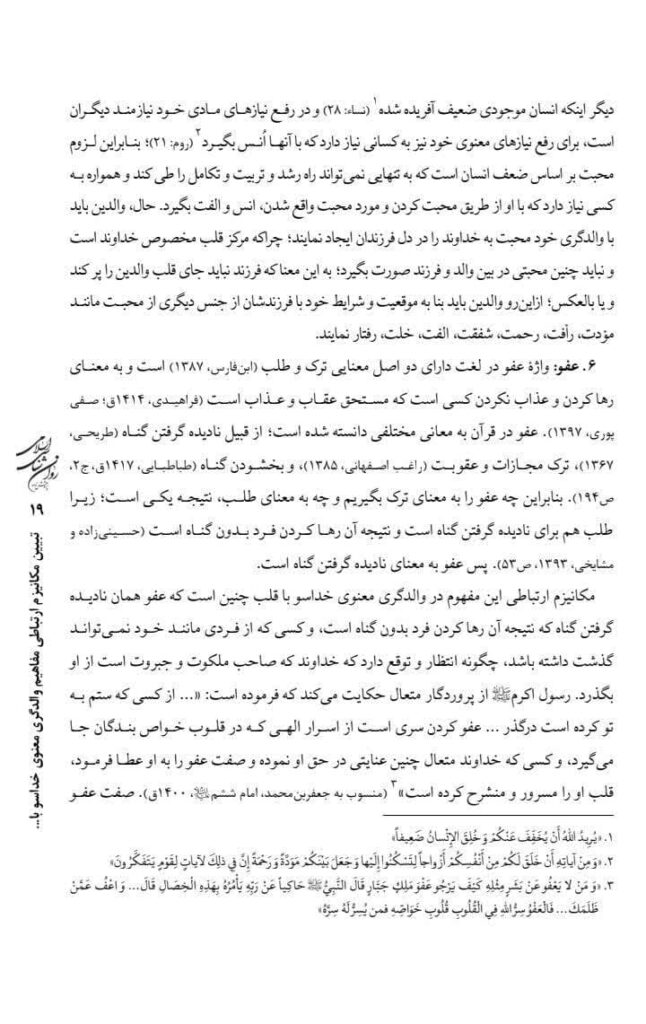 دیگر اینکه انسان موجودی ضعیف آفریده شده۱ (نساء: ۲۸) و در رفع نیازهای مادی خود نیازمند دیگران
است، برای رفع نیازهای معنوی خود نیز به کسانی نیاز دارد که با آنها اُنس بگیرد۲ (روم: ۲۱)؛ بنابراین لزوم
محبت بر اساس ضعف انسان است که به تنهایی نمی‌تواند راه رشد و تربیت و تکامل را طی کند و همواره به
کسی نیاز دارد که با او از طریق محبت کردن و مورد محبت واقع شدن، انس و الفت بگیرد. حال، والدین باید
با والدگری خود محبت به خداوند را در دل فرزندان ایجاد نمایند؛ چراکه مرکز قلب مخصوص خداوند است
و نباید چنین محبتی در بین والد و فرزند صورت بگیرد؛ به این معنا که فرزند نباید جای قلب والدین را پر کند
و یا بالعکس؛ ازاین‌رو والدین باید بنا به موقعیت و شرایط خود با فرزندشان از جنس دیگری از محبت مانند
مؤدت، رأفت، رحمت، شفقت، الفت، خلت، رفتار نمایند.
۶. عفو: واژهٔ عفو در لغت دارای دو اصل معنایی ترک و طلب (ابن‌فارس، ۱۳۸۷) است و به معنای
رها کردن و عذاب نکردن کسی است که مستحق عقاب و عذاب است (فراهیدی، ۱۴۱۴ق؛ صفی
پوری، ۱۳۹۷). عفو در قرآن به معانی مختلفی دانسته شده است؛ از قبیل نادیده گرفتن گناه (طریحی،
۱۳۶۷)، ترک مجازات و عقوبت (راغب اصفهانی، ۱۳۸۵)، و بخشودن گناه (طباطبایی، ۱۴۱۷ق، ج۲،
ص۱۹۴). بنابراین چه عفو را به معنای ترک بگیریم و چه به معنای طلب، نتیجه یکی است؛ زیرا
طلب هم برای نادیده گرفتن گناه است و نتیجه آن رها کردن فرد بدون گناه است (حسینی‌زاده و
مشایخی، ۱۳۹۳، ص۵۳). پس عفو به معنای نادیده گرفتن گناه است.
مکانیزم ارتباطی این مفهوم در والدگری معنوی خداسو با قلب چنین است که عفو همان نادیده
گرفتن گناه که نتیجه آن رها کردن فرد بدون گناه است، و کسی که از فردی مانند خود نمی‌تواند
گذشت داشته باشد، چگونه انتظار و توقع دارد که خداوند که صاحب ملکوت و جبروت است از او
بگذرد. رسول اکرمﷺ از پروردگار متعال حکایت می‌کند که فرموده است: «... از کسی که ستم به
تو کرده است درگذر ... عفو کردن سری است از اسرار الهی که در قلوب خواص بندگان جا
می‌گیرد، و کسی که خداوند متعال چنین عنایتی در حق او نموده و صفت عفو را به او عطا فرمود،
قلب او را مسرور و منشرح کرده است»۳ (منسوب به جعفربن‌محمد، امام ششم، ۱۴۰۰ق). صفت عفو
۱. «يُرِيدُ اللهُ أَنْ يُخَفِّفَ عَنْكُمْ وَ خُلِقَ الإِنْسانُ ضَعِيفاً»
۲. «وَ مِنْ آياتِهِ أَنْ خَلَقَ لَكُمْ مِنْ أَنْفُسِكُمْ أَزْواجاً لِتَسْكُنُوا إِلَيْها وَ جَعَلَ بَيْنَكُمْ مَوَدَّةً وَ رَحْمَةً إِنَّ فِي ذلِكَ لآياتٍ لِقَوْمٍ يَتَفَكَّرُونَ»
۳. «وَ مَنْ لا يَعْفُو عَنْ بَشَرٍ مِثْلِهِ كَيْفَ يَرْجُو عَفْوَ مَلِكٍ جَبَّارٍ قَالَ النَّبِيُّ ﷺ حَاكِياً عَنْ رَبِّهِ يَأْمُرُهُ بِهَذِهِ الْخِصَالِ قَالَ... وَ اعْفُ عَمَّنْ
ظَلَمَكَ... فَالْعَفْوُ سِرُّ اللهِ فِي الْقُلُوبِ قُلُوبِ خَوَاصِّهِ فمن يُسِرُّ لَهُ سِرَّهُ»
تبیین مکانیزم ارتباطی مفاهیم والدگری معنوی خداسو با...